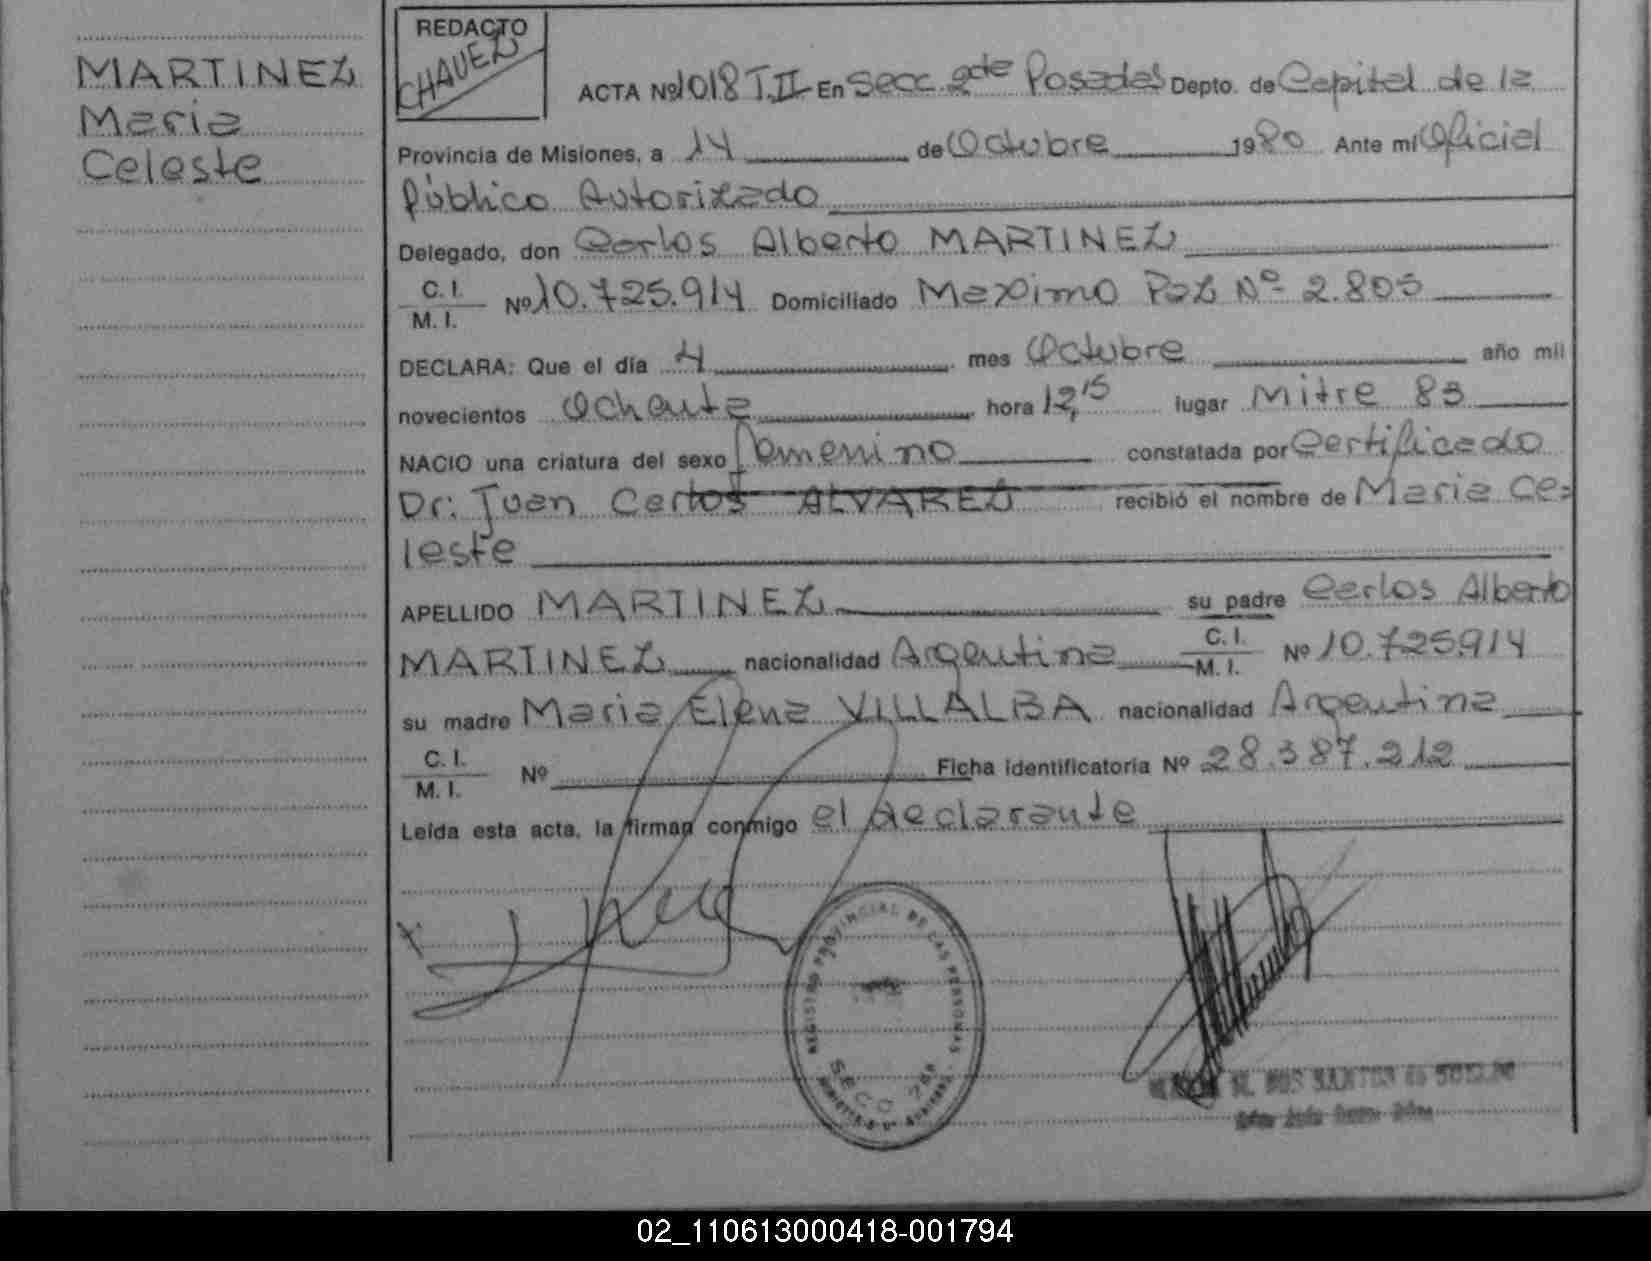 MARTINEZ
Maria
Celeste
REDACTO
CHAVEZ
ACTA Nº 1018 T.II En Secc. 2da Posadas Depto. de Capital de la
Provincia de Misiones, a 14 de Octubre 1980 Ante mi Oficial
Público Autorizado
Delegado, don Carlos Alberto MARTINEZ
C. I.
M. I. Nº 10.725.914 Domiciliado Maximo Paz Nº 2.805
DECLARA: Que el día 4 mes Octubre año mil
novecientos Ochenta hora 12,15 lugar Mitre 83
NACIO una criatura del sexo Femenino constatada por Certificado
Dr. Juan Carlos ALVAREZ recibió el nombre de Maria Ce=
leste
APELLIDO MARTINEZ su padre Carlos Alberto
MARTINEZ nacionalidad Argentina C. I. M. I. Nº 10.725.914
su madre Maria Elena VILLALBA nacionalidad Argentina
C. I.
M. I. Nº Ficha identificatoria Nº 28.387.212
Leída esta acta, la firman conmigo el declarante
REGISTRO PROVINCIAL DE LAS PERSONAS
SECC 2da
02_110613000418-001794